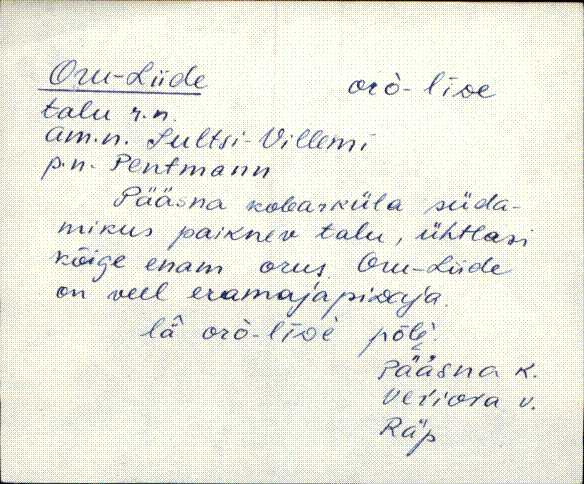 Oru-Liide orò-līde
talu r.n.
am.n. Sultsi-Villemi
p.n. Pentmann
Pääsna kobarküla süda-
mikus paiknev talu, ühtlasi
kõige enam orus. Oru-Liide
on veel eramajapidaja.
lǟ orò-līde
Pääsna k.
Veriora v.
Räp